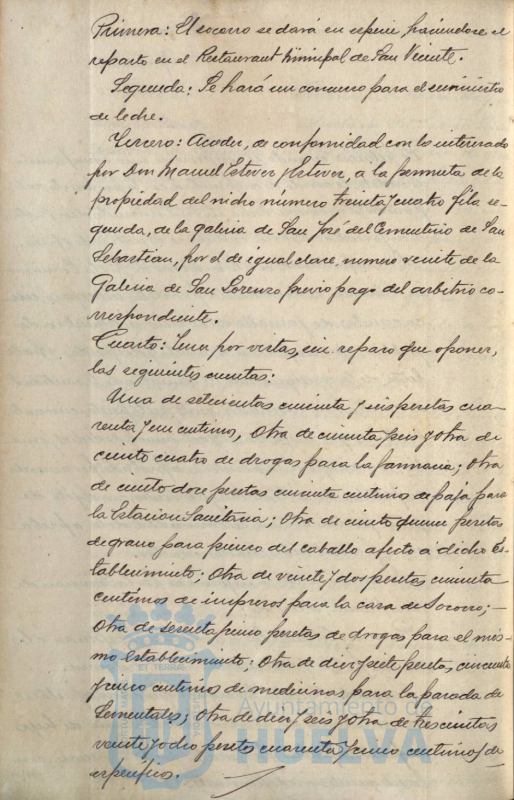 Primera: El socorro se dará en especie, haciendose el
reparto en el Restaurant Municipal de San Vicente.
Segunda: Se hará un convenio para el suministro
de leche.
Tercero: Acceder, de conformidad con lo interesado
por Don Manuel Estever y Estever, a la permuta de la
propiedad del nicho número treinta y cuatro fila se-
gunda, de la galeria de San José del Cementerio de San
Sebastian, por el de igual clase, numero veinte de la
Galeria de San Lorenzo previo pago del arbitrio co-
rrespondiente.
Cuarto: Tener por vistas, sin reparo que oponer,
las siguientes cuentas:
Una de setecientas cincuenta y seis pesetas cua-
renta y un centimos, otra de cincuenta seis y otra de
ciento cuatro de drogas para la farmacia; Otra
de ciento doce pesetas cincuenta centimos de paja para
la Estacion Sanitaria; Otra de ciento quince pesetas
de grano para pienso del caballo afecto á dicho Es-
tablecimiento; Otra de veinte y dos pesetas cincuenta
centimos de impresos para la casa de Socorro;
Otra de sesenta y cinco pesetas de drogas para el mis-
mo establecimiento; Otra de diez y siete pesetas cincuenta
y cinco centimos de medicinas para la parada de
Sementales; Otra de diez y seis y otra de trescientas
veinte y ocho pesetas cuarenta y cinco centimos de
especificos.
Ayuntamiento de
HUELVA